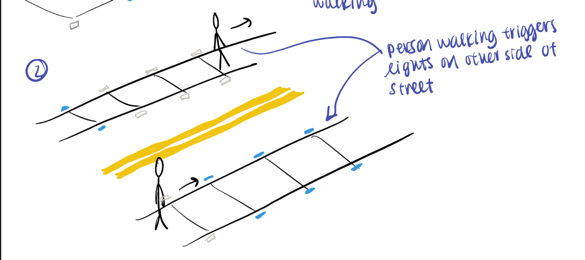 walking
2
person walking triggers
lights on other side of
street